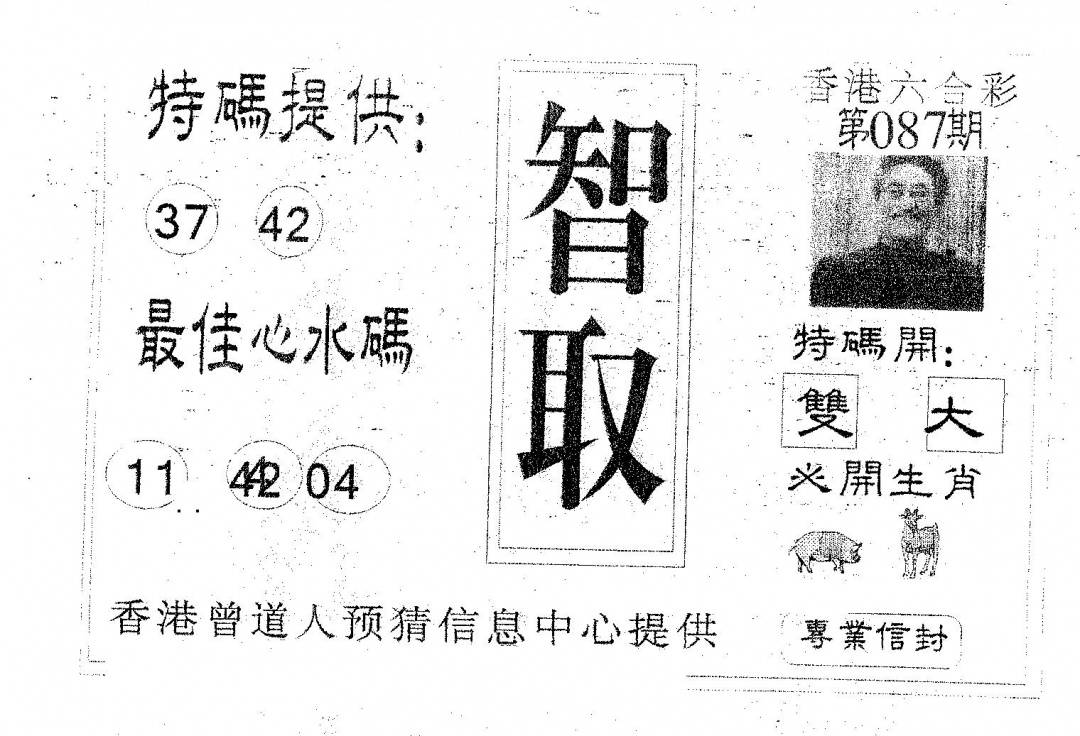 特碼提供：
37 42
最佳心水碼
11 42 04
香港曾道人预猜信息中心提供
智取
香港六合彩
第087期
特碼開：
雙 大
必開生肖
專業信封